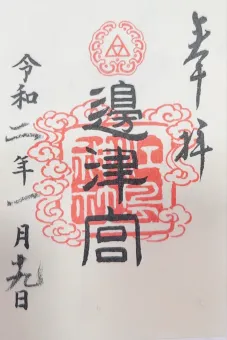 奉拝
邊津宮
令和二年一月十九日